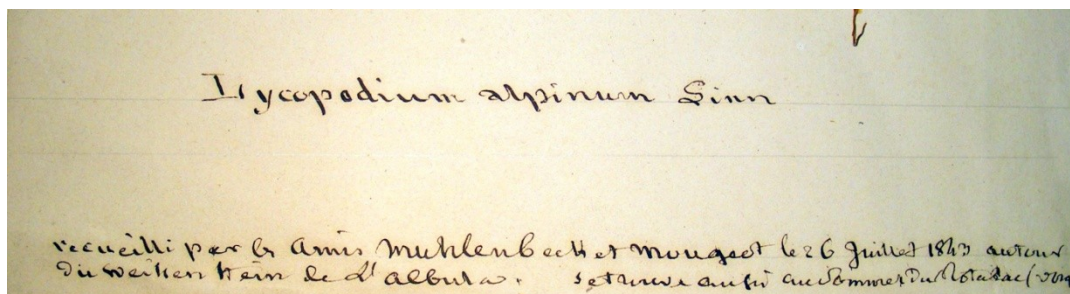 Lycopodium alpinum Linn
recueilli par les amis Muhlenbeck et Mougeot le 26 Juillet 1843 autour
du Weissenstein de L'albula. se trouve aussi au Sommet du Rotabac (